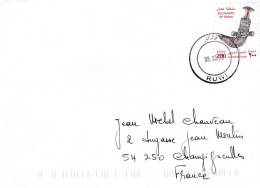 سلطنة عمان
SULTANATE
OF OMAN
200
٢٠٠
RUWI
Jean Michel Chauveau
2 Impasse Jean Moulin
54 250 Champigneulles
France